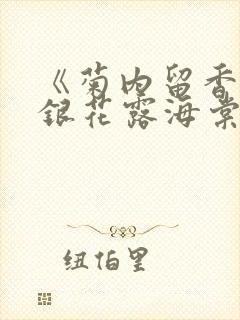 《菊内留香
银花露海棠
纽伯里